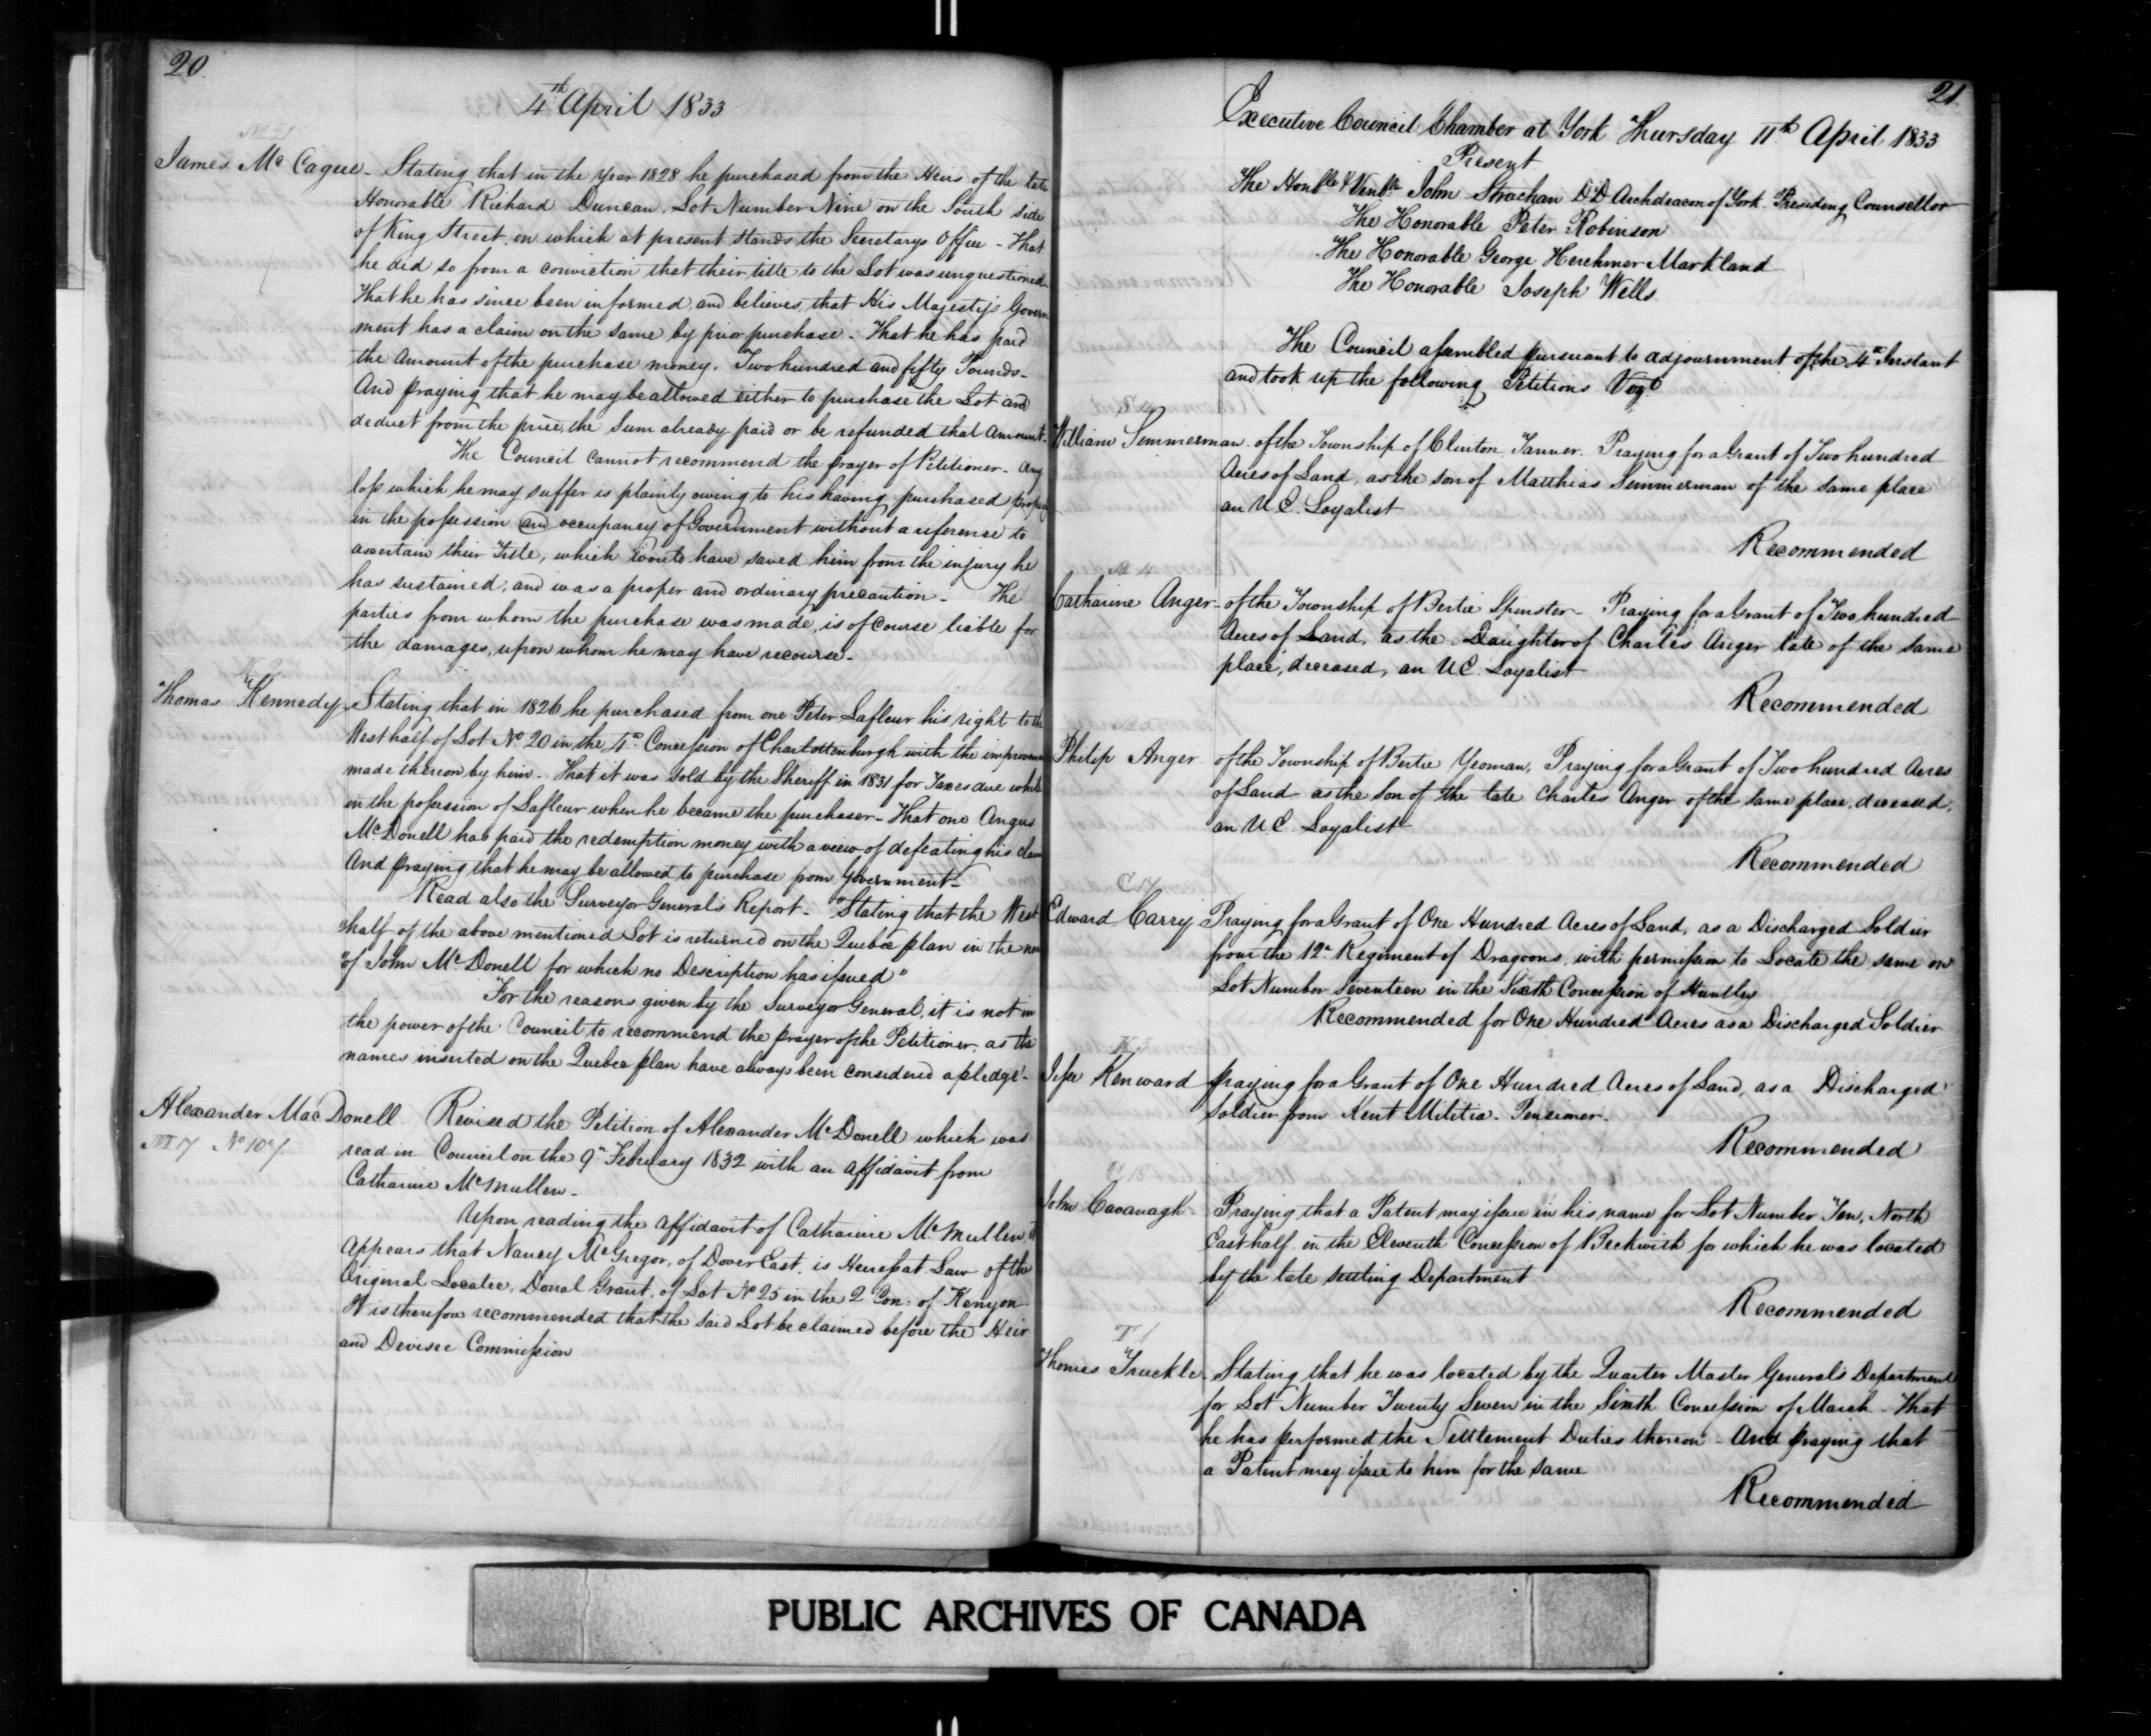 20.
4th April 1833
James McCague - Stating that in the year 1828 he purchased from the Heirs of the late
Honorable Richard Duncan, Lot Number Nine on the South side
of King Street, on which at present stands the Secretarys Office - That
he did so from a conviction that their title to the Lot was unquestioned
That he has since been informed and believes, that His Majesty's Govern
ment has a claim on the same by prior purchase - That he has paid
the amount of the purchase money, Two hundred and fifty Pounds -
And praying that he may be allowed either to purchase the Lot and
deduct from the price, the sum already paid or be refunded that amount -
The Council cannot recommend the prayer of Petitioner - Any
loss which he may suffer is plainly owing to his having purchased
in the possession and occupancy of Government without a reference to
ascertain their Title, which would have saved him from the injury he
has sustained, and was a proper and ordinary precaution - The
parties from whom the purchase was made, is of course liable for
the damages, upon whom he may have recourse -
Thomas Kennedy - Stating that in 1826 he purchased from one Peter Lafleur his right to the
West half of Lot No 20 in the 4th Concession of Charlottenburgh with the
made thereon by him - That it was sold by the Sheriff in 1831 for Taxes due while
in the possession of Lafleur when he became the purchaser - That one Angus
McDonell has paid the redemption money with a view of defeating his claim
And praying that he may be allowed to purchase from Government -
Read also the Surveyor General's Report - "Stating that the West
"half of the above mentioned Lot is returned on the Quebec plan in the
"of John McDonell for which no Description has issued"
"For the reasons given by the Surveyor General, it is not in
the power of the Council to recommend the prayer of the Petitioner, as the
names inserted on the Quebec plan have always been considered a pledge" -
Alexander MacDonell Revised the Petition of Alexander McDonell which was
M 17 No 107
read in Council on the 9th February 1832 with an affidavit from
Catharine McMullen -
Upon reading the affidavit of Catharine McMullen, it
Appears that Nancy McGregor, of Dover East, is Heiress at Law of the
Original Locatee, Donal Grant, of Lot No 25 in the 2 Con: of Kenyon
It is therefore recommended that the said Lot be claimed before the Heir
and Devisee Commission
21.
Executive Council Chamber at York Thursday 11th April 1833
Present
The Honble & Venble John Strachan DD Archdeacon of York Presiding Counsellor
The Honorable Peter Robinson
The Honorable George Herchmer Markland
The Honorable Joseph Wells
The Council assembled pursuant to adjournment of the 4th Instant
and took up the following Petitions Vizt
William Simmerman of the Township of Clinton Tanner. Praying for a Grant of Two hundred
Acres of Land, as the son of Matthias Simmerman of the same place
an U E. Loyalist
Recommended
A 4
Catharine Anger - of the Township of Bertie Spinster - Praying for a Grant of Two hundred
Acres of Land, as the Daughter of Charles Anger late of the same
place, deceased, an U E. Loyalist
Recommended
Philip Anger of the Township of Bertie Yeoman, Praying for a Grant of Two hundred Acres
of Land as the Son of the late Charles Anger of the same place, deceased,
an U E Loyalist
Recommended
C 17
Edward Carry Praying for a Grant of One Hundred Acres of Land, as a Discharged Soldier
from the 12th Regiment of Dragoons, with permission to Locate the same on
Lot Number Seventeen in the Sixth Concession of Huntley
Recommended for One Hundred Acres as a Discharged Soldier
Jesse Kenward praying for a Grant of One Hundred Acres of Land, as a Discharged
Soldier from Kent Militia - Pensioner.
Recommended
John Cavanagh - Praying that a Patent may issue in his name for Lot Number Ten, North
East half in the Eleventh Concession of Beckwith for which he was located
by the late settling Department
Recommended
T 1
Thomas Truckle - Stating that he was located by the Quarter Master General's Department
for Lot Number Twenty Seven in the Sixth Concession of March - That
he has performed the Settlement Duties thereon - And praying that
a Patent may issue to him for the same
Recommended
PUBLIC ARCHIVES OF CANADA